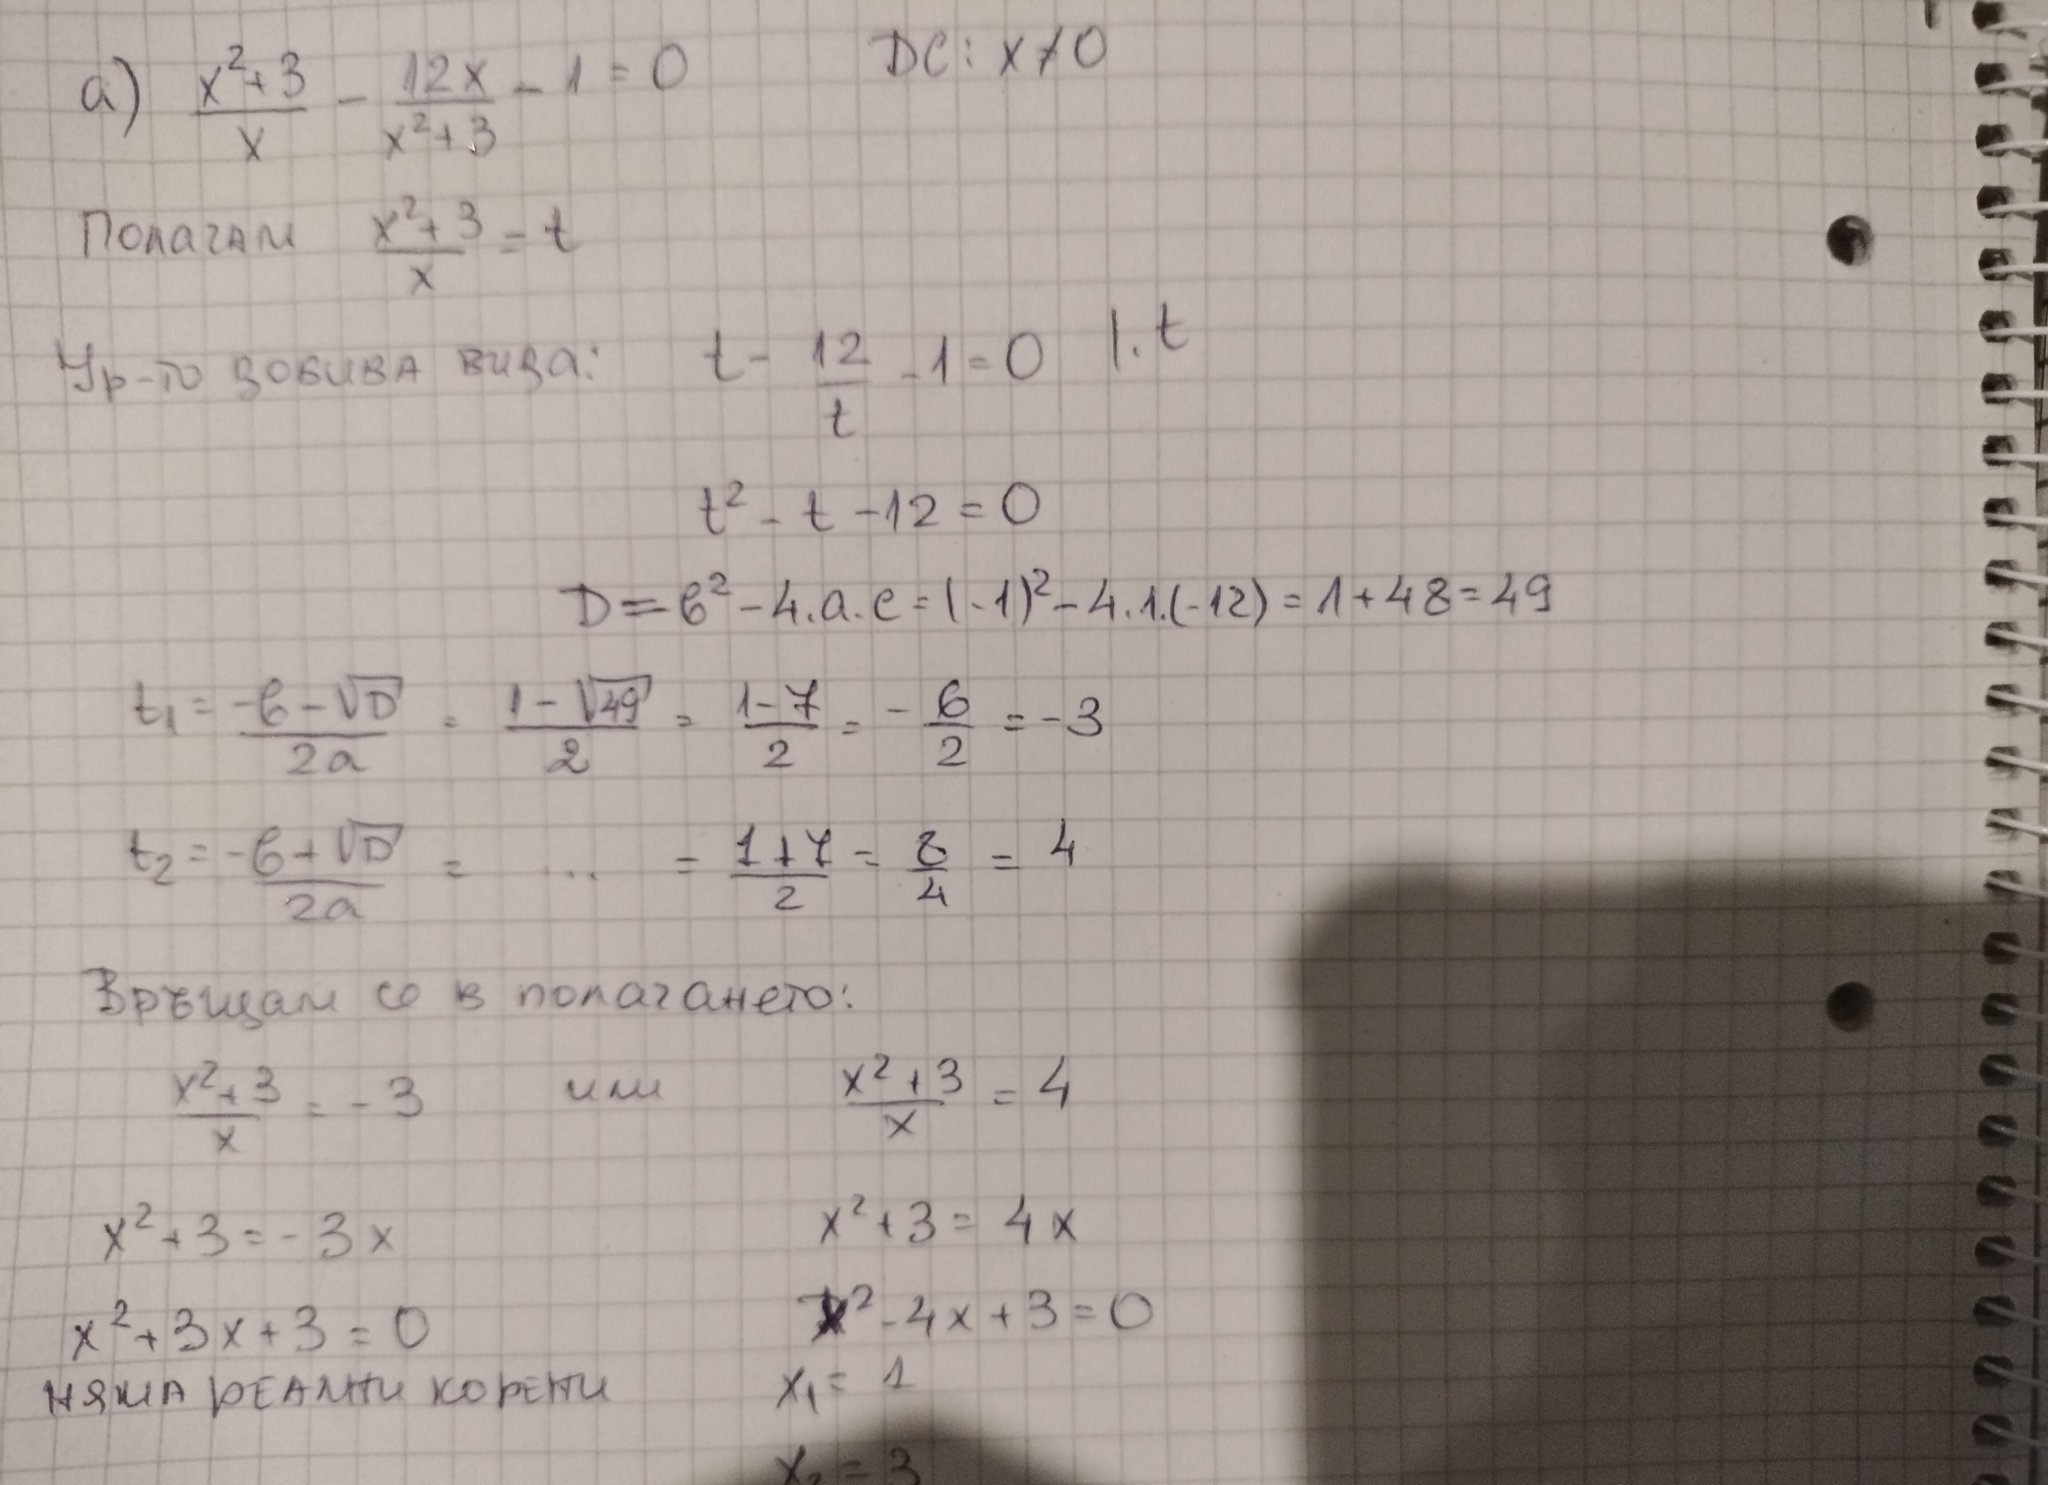 а) (x²+3)/x - 12x/(x²+3) - 1 = 0 DC: x≠0
Полагам (x²+3)/x = t
Ур-то добива вида: t - 12/t - 1 = 0 |.t
t² - t - 12 = 0
D = b² - 4.a.c = (-1)² - 4.1.(-12) = 1+48 = 49
t₁ = (-b-√D)/2a = (1-√49)/2 = (1-7)/2 = -6/2 = -3
t₂ = (-b+√D)/2a = ... = (1+7)/2 = 8/4 = 4
Връщам се в полагането:
(x²+3)/x = -3 или (x²+3)/x = 4
x²+3 = -3x x²+3 = 4x
x²+3x+3 = 0 x²-4x+3 = 0
НЯМА РЕАЛНИ КОРЕНИ x₁ = 1
x₂ = 3